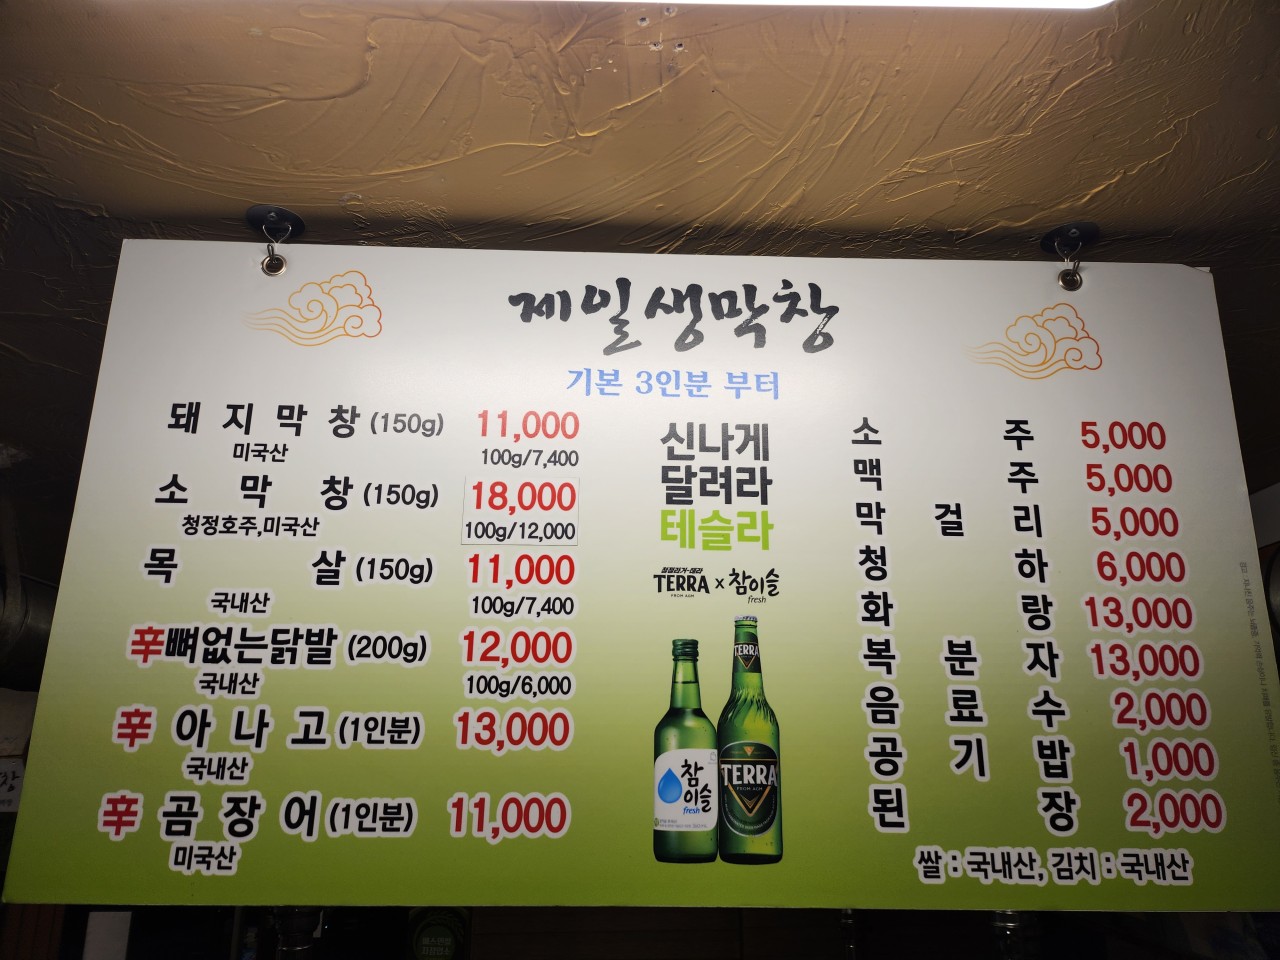 제일생막창
기본 3인분 부터
돼지막창 (150g) 11,000
미국산 100g/7,400
소막창 (150g) 18,000
청정호주,미국산 100g/12,000
목살 (150g) 11,000
국내산 100g/7,400
辛뼈없는닭발 (200g) 12,000
국내산 100g/6,000
辛 아나고 (1인분) 13,000
국내산
辛 곰장어 (1인분) 11,000
미국산
신나게
달려라
테슬라
TERRA x 참이슬
FROM AGM fresh
TERRA
참이슬
fresh
TERRA
FROM AGM
소주 5,000
맥주 5,000
막걸리 5,000
청하 6,000
화랑 13,000
복분자 13,000
음료수 2,000
공기밥 1,000
된장 2,000
쌀 : 국내산, 김치 : 국내산